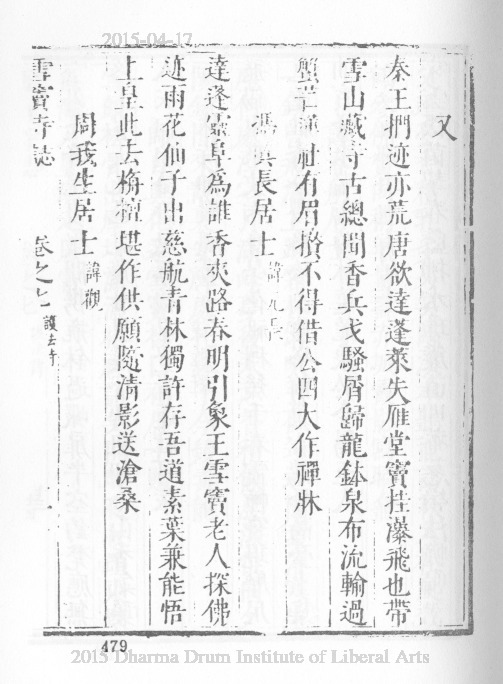 2015-04-17
又
秦王捫迹亦荒唐欲達蓬萊失雁堂竇挂瀑飛也帶
雪山藏寺古總聞香兵戈騷屑歸龍鉢泉布流輸過
蟹茫蓮社有眉攢不得借公四大作禪牀
馮 長居士諱九
達逢靈阜為誰香夾路春明引象王雪竇老人探佛
迹雨花仙子出慈航青林獨許存吾道素葉兼能悟
上皇此去栴檀堪作供願隨清影送滄桑
周我生居士諱觀
雪竇寺誌 卷之七 護法寺
479
2015 Dharma Drum Institute of Liberal Arts